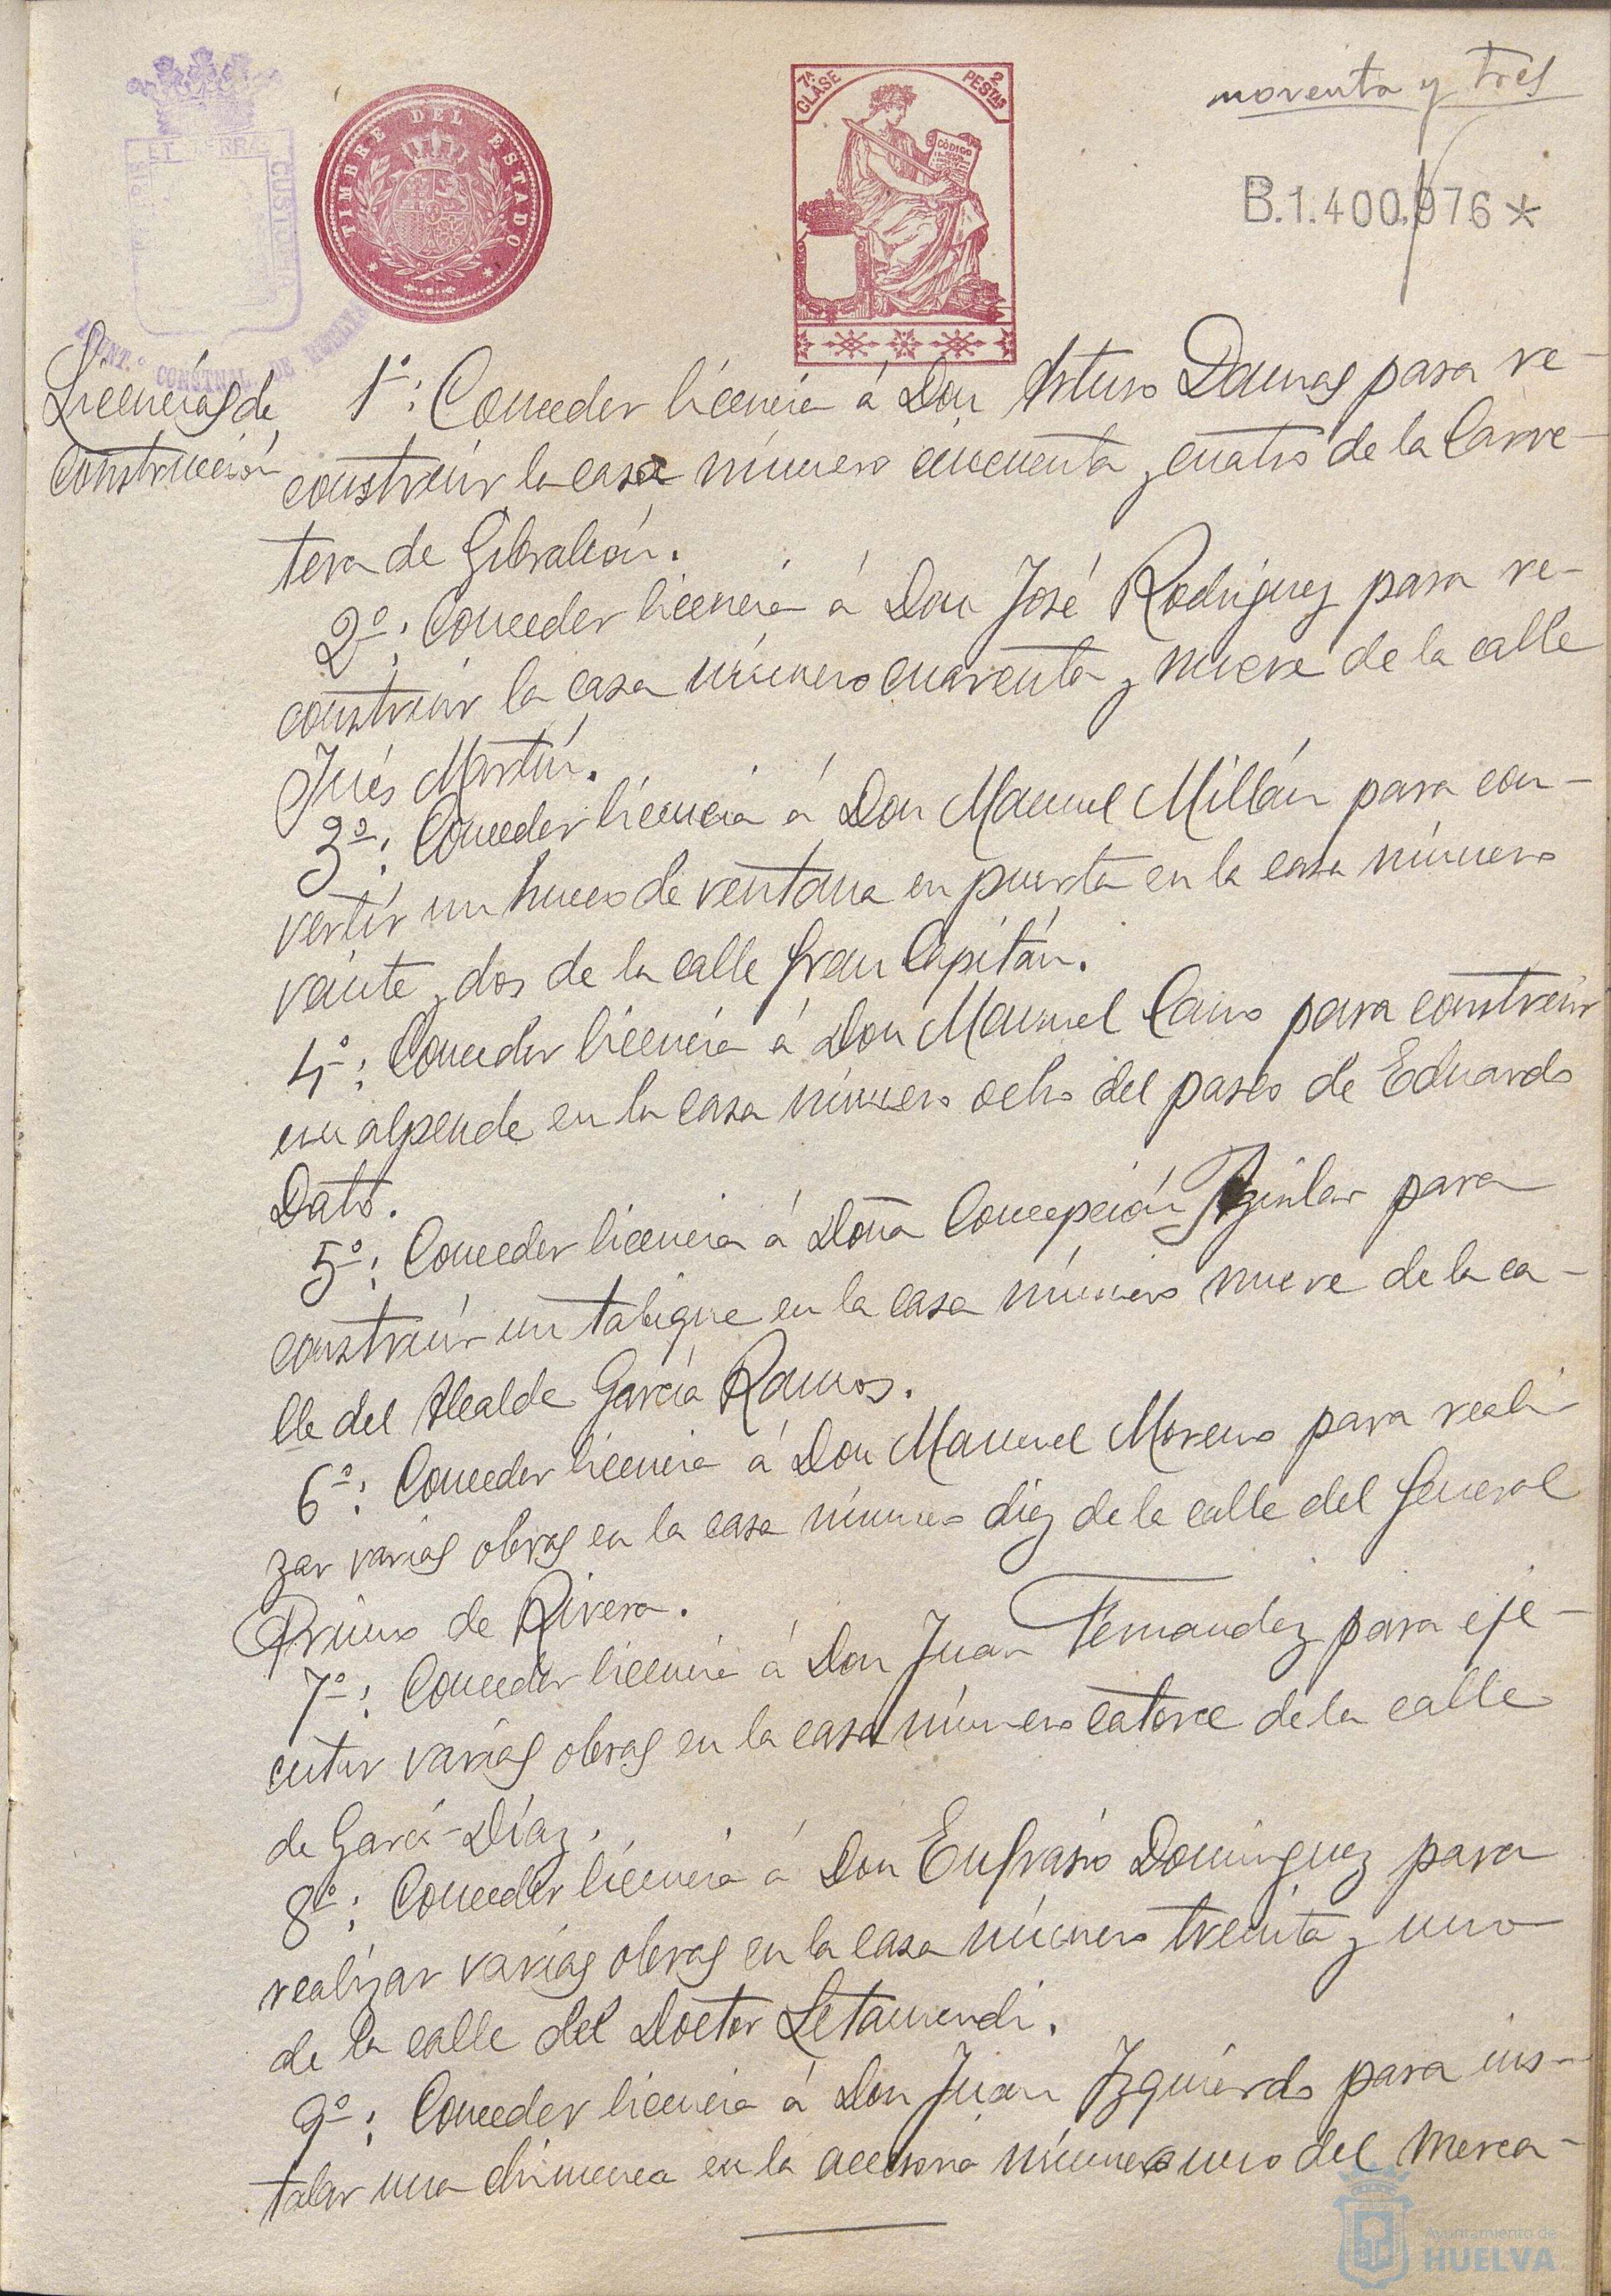 noventa y tres
TIMBRE DEL ESTADO
7ª CLASE
2 PESTAS
CÓDIGO
B.1.400.976*
CUSTODIA
AYUNT.º CONSTNAL. DE HUELVA
Licencias de
construcción
1º: Conceder licencia á Don Arturo Damas para re-
construir la casa número cincuenta y cuatro de la Carre-
tera de Gibraleón.
2º: Conceder licencia á Don José Rodríguez para re-
construir la casa número cuarenta y nueve de la calle
Inés Martín.
3º: Conceder licencia á Don Manuel Millán para con-
vertir un hueco de ventana en puerta en la casa número
veinte y dos de la calle Gran Capitán.
4º: Conceder licencia á Don Manuel Cano para construir
un alpende en la casa número ocho del paseo de Eduardo
Dato.
5º: Conceder licencia á Doña Concepción Aguilar para
construir un tabique en la casa número nueve de la ca-
lle del Alcalde García Ramos.
6º: Conceder licencia á Don Manuel Moreno para reali-
zar varias obras en la casa número diez de la calle del General
Primo de Rivera.
7º: Conceder licencia á Don Juan Fernandez para eje-
cutar varias obras en la casa número catorce de la calle
de Garci-Díaz.
8º: Conceder licencia á Don Eufrasio Domínguez para
realizar varias obras en la casa número treinta y uno
de la calle del Doctor Letamendi.
9º: Conceder licencia á Don Juan Izquierdo para ins-
talar una chimenea en la accesoria número uno del merca-
Ayuntamiento de
HUELVA